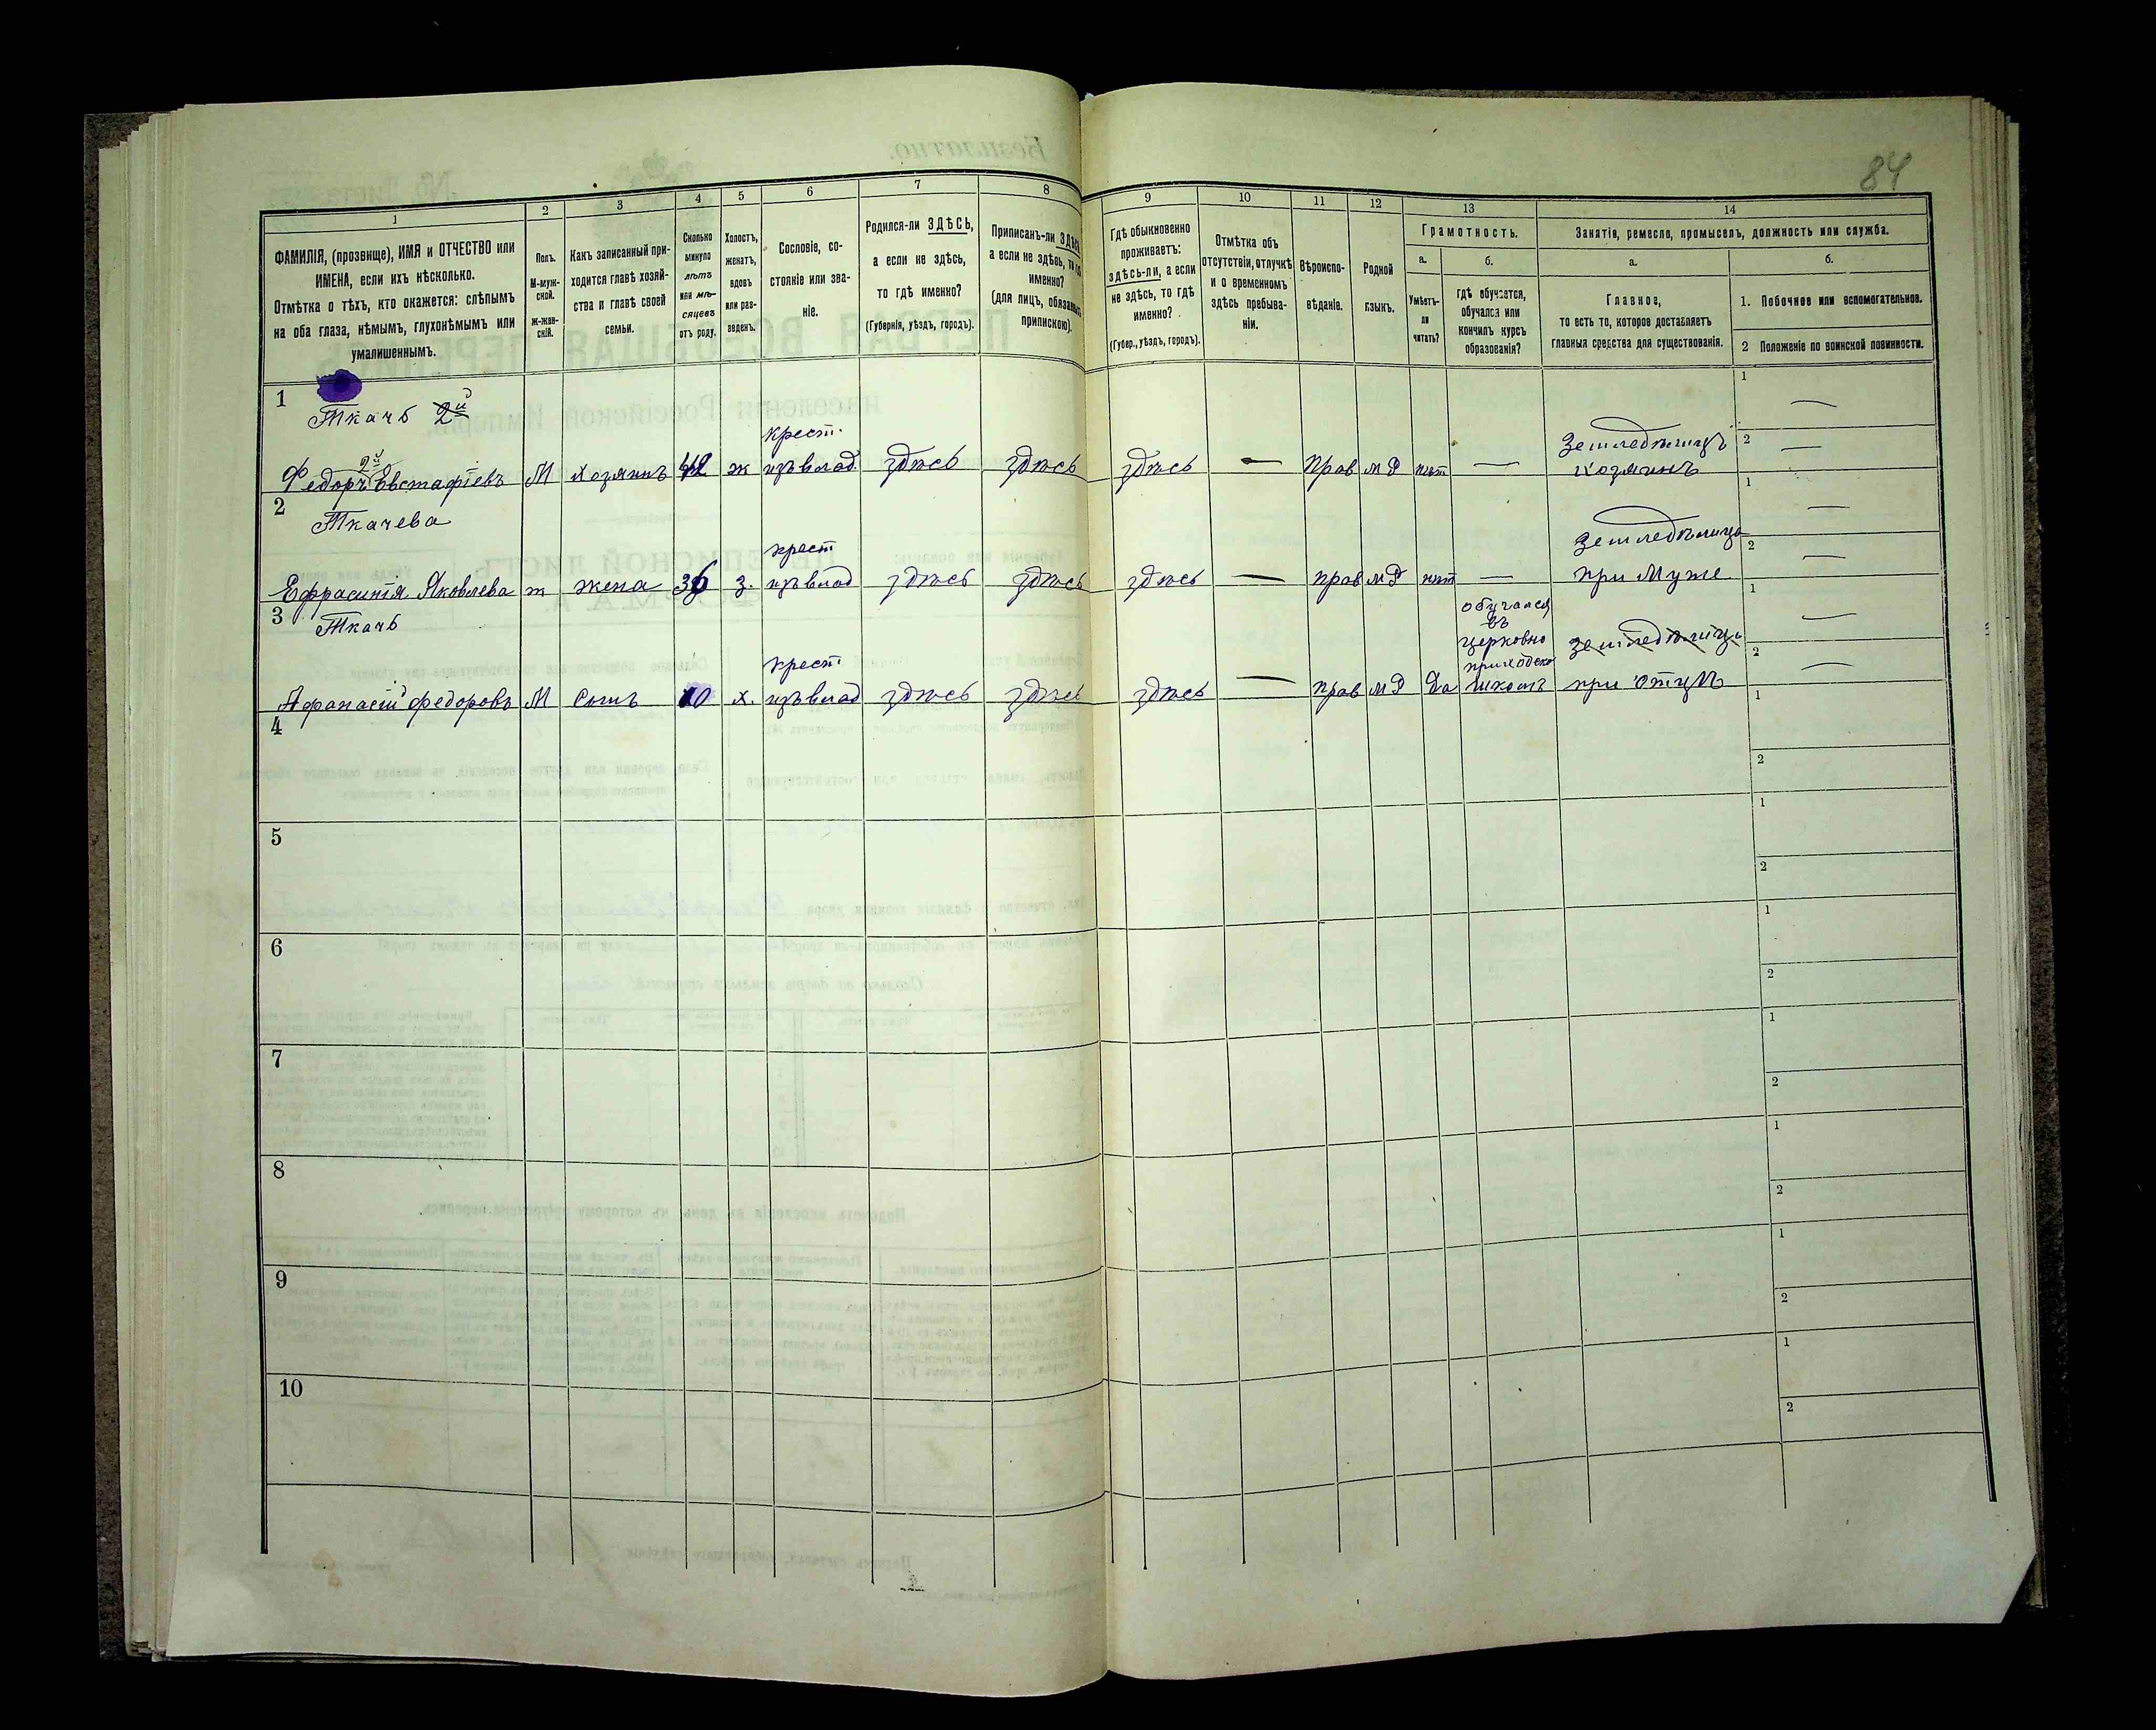 84
1
2
3
4
5
6
7
8
9
10
11
12
13
14
ФАМИЛІЯ, (прозвище), ИМЯ и ОТЧЕСТВО или
ИМЕНА, если ихъ нѣсколько.
Отмѣтка о тѣхъ, кто окажется: слѣпымъ
на оба глаза, нѣмымъ, глухонѣмымъ или
умалишеннымъ.
Полъ.
М-муж-
ской.
ж-жен-
скій.
Какъ записанный при-
ходится главѣ хозяй-
ства и главѣ своей
семьи.
Сколько
минуло
лѣтъ
или мѣ-
сяцевъ
отъ роду.
Холостъ,
женатъ,
вдовъ
или раз-
веденъ.
Сословіе, со-
стояніе или зва-
ніе.
Родился-ли ЗДѢСЬ,
а если не здѣсь,
то гдѣ именно?
(Губернія, уѣздъ, городъ).
Приписанъ-ли ЗДѢСЬ,
а если не здѣсь, то гдѣ
именно?
(для лицъ, обязанныхъ
припискою).
Гдѣ обыкновенно
проживаетъ:
здѣсь-ли, а если
не здѣсь, то гдѣ
именно?
(Губер., уѣздъ, городъ).
Отмѣтка объ
отсутствіи, отлучкѣ
и о временномъ
здѣсь пребыва-
ніи.
Вѣроиспо-
вѣданіе.
Родной
языкъ.
Грамотность.
а.
Умѣетъ-
ли
читать?
б.
гдѣ обучается,
обучался или
кончилъ курсъ
образованія?
Занятіе, ремесло, промыселъ, должность или служба.
а.
Главное,
то есть то, которое доставляетъ
главныя средства для существованія.
б.
1. Побочное или вспомогательное.
2 Положеніе по воинской повинности.
1
Ткачъ 2й
Федоръ 2й Евстафіевъ
М
хозяинъ
42
ж
крест.
изъ влад.
здѣсь
здѣсь
здѣсь
—
прав
м Р
нѣт
—
Земледѣлицъ
хозяинъ
1 —
2 —
2
Ткачева
Ефрасинія Яковлева
ж
жена
36
з.
крест
изъ влад
здѣсь
здѣсь
здѣсь
—
прав
м Р
нѣт
—
Земледѣлица
при Муже
1 —
2 —
3
Ткачъ
Афанасій Федоровъ
М
Сынъ
10
х.
крест.
изъ влад
здѣсь
здѣсь
здѣсь
—
прав
м Р
Да
обучался
въ
церковно
приходско
школѣ
Земледѣлицъ
при Отцѣ
1 —
2 —
4
1
2
5
1
2
6
1
2
7
1
2
8
1
2
9
1
2
10
1
2